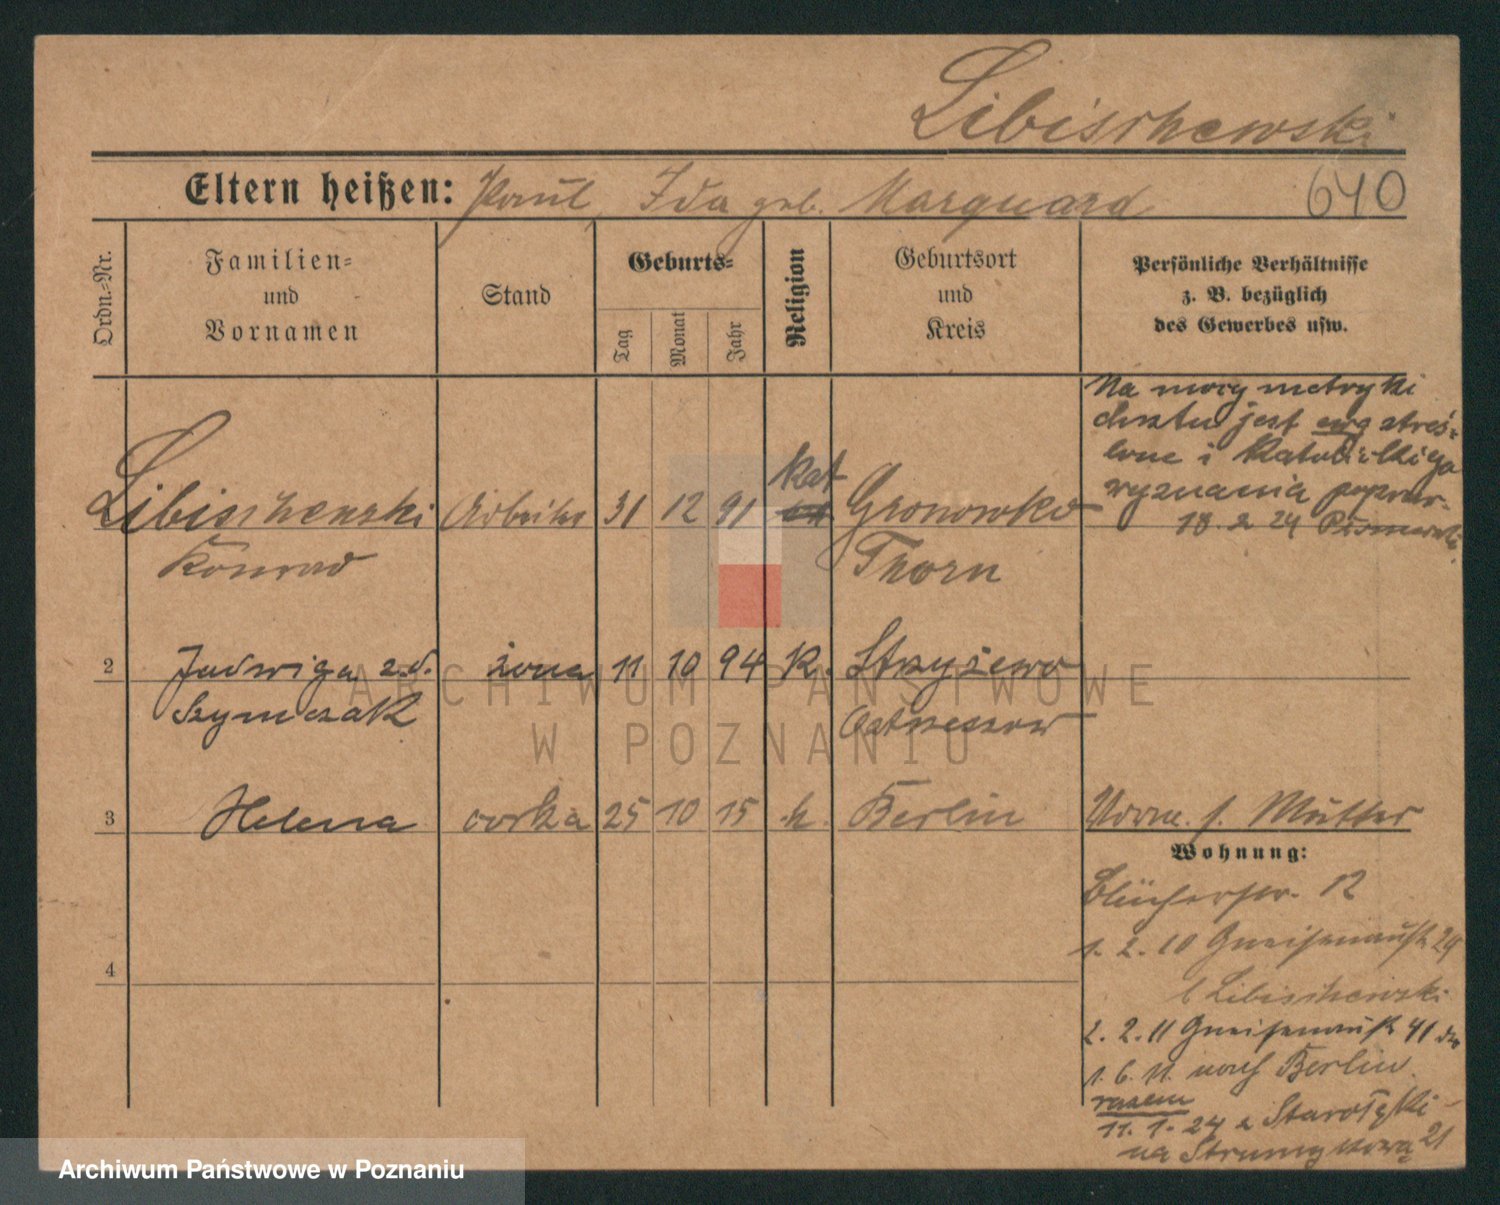 Libischewski
Eltern heißen: Paul, Ida geb. Marquard 640
Ordn.-Nr.
Familien-
und
Vornamen
Stand
Geburts-
Tag
Monat
Jahr
Religion
Geburtsort
und
Kreis
Persönliche Verhältnisse
z. B. bezüglich
des Gewerbes usw.
Na mocy metryki
chrztu jest ewg skreś-
lone i Katolickiego
wyznania popraw-
18. 2 24
Libischewski Arbeiter 31 12 91 kat Gronowko
Konrad Thorn
2 Jadwiga z d. żona 11 10 94 K. Strzyżewo
Szymczak Ostrzeszow
3 Helena córka 25 10 15 k. Berlin Vorm. f. Mutter
Wohnung:
Blücherstr. 12
1. 2. 10 Gneisenaustr 29
b Libischewski
2. 2. 11 Gneisenaustr 41
1. 6. 11. nach Berlin.
razem
11. 1. 24 z Starołęki
na Strumykową 21
4
ARCHIWUM PAŃSTWOWE
W POZNANIU
Archiwum Państwowe w Poznaniu